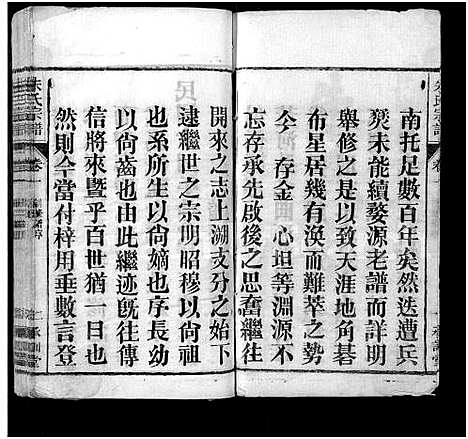 南托足數百年矣然迭遭兵
燹未能續婺源老譜而詳明
舉修之以致天涯地角碁
布星居幾有渙而難萃之勢
今　存金　心坦等淵源不
忘存承先啟後之思奮繼往
開來之志上溯支分之始下
逮繼世之宗明昭穆以尚祖
也系所生以尚嫡也序長幼
以尚齒也由此繼迹旣往傳
信將來曁乎百世猶一日也
然則今當付梓用垂數言登
朱氏宗譜
卷